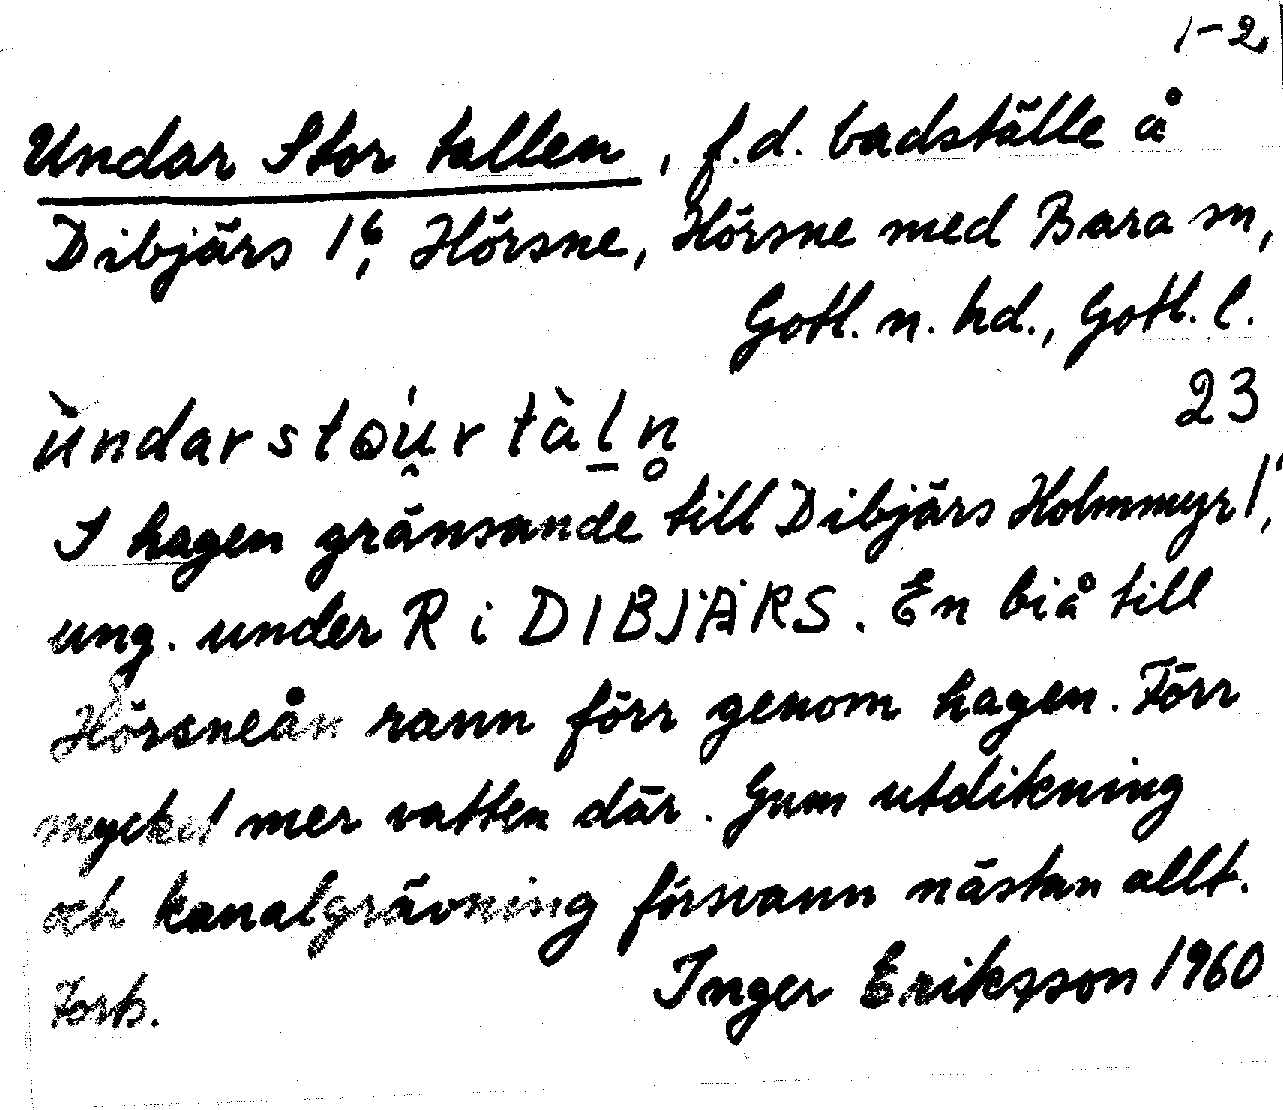 1-2
Undar Stor tallen, f.d. badställe å
Dibjärs 1⁶, Hörsne, Hörsne med Bara sn,
Gotl. n. hd., Gotl. l.
23
ùndar stɷ́u̯r tàl̲n̥
I hagen gränsande till Dibjärs Holmmyr 1¹,
ung. under R i DIBJÄRS. En biå till
Hörsneån rann förr genom hagen. Förr
mycket mer vatten där. Gnm utdikning
och kanalgrävning försvann nästan allt.
Forts. Inger Eriksson 1960